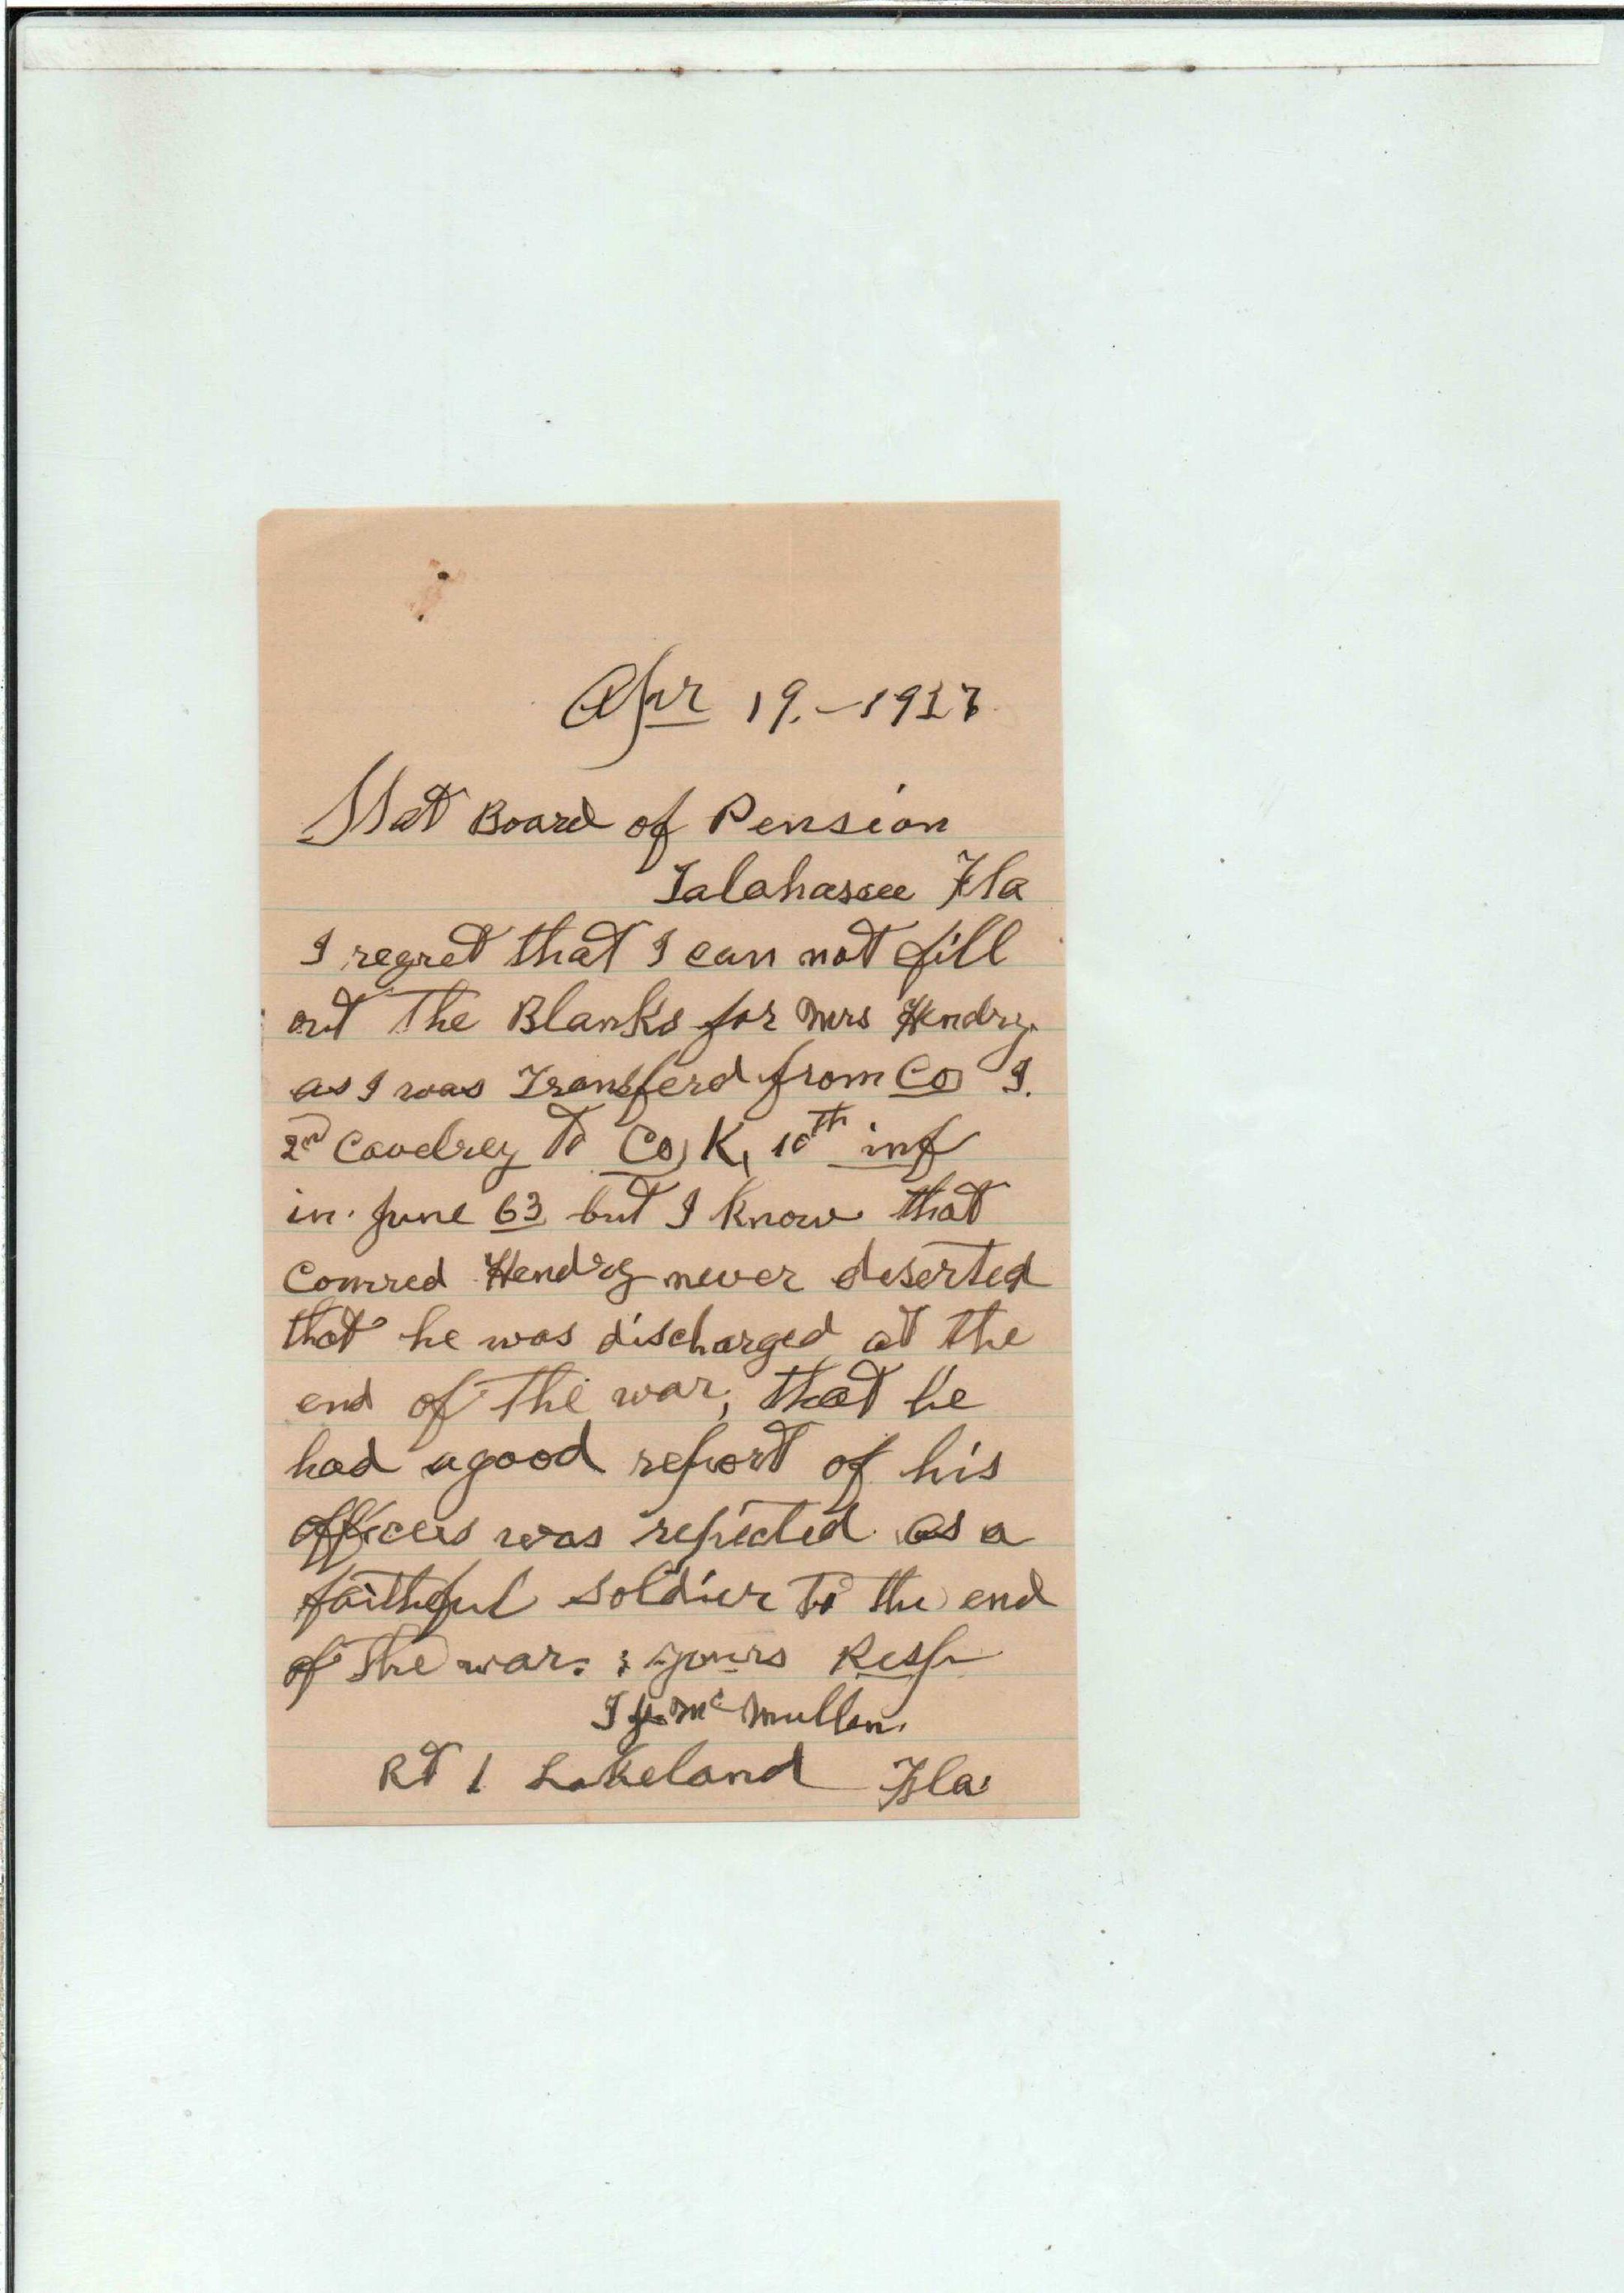 Apr 19.-1917
Stat Board of Pension
Talahassee Fla
I regret that I can not fill
out The Blanks for Mrs Hendry.
as I was Transferd from Co I.
2nd Cavelrey To Co, K, 10th inf
in June 63 but I know that
Comred Hendry never deserted
that he was discharged at the
end of the war, that he
had a good report of his
officers was repected as a
faithful soldier To the end
of the war. : yours Resp
McMullen.
Rt 1 Lakeland Fla.